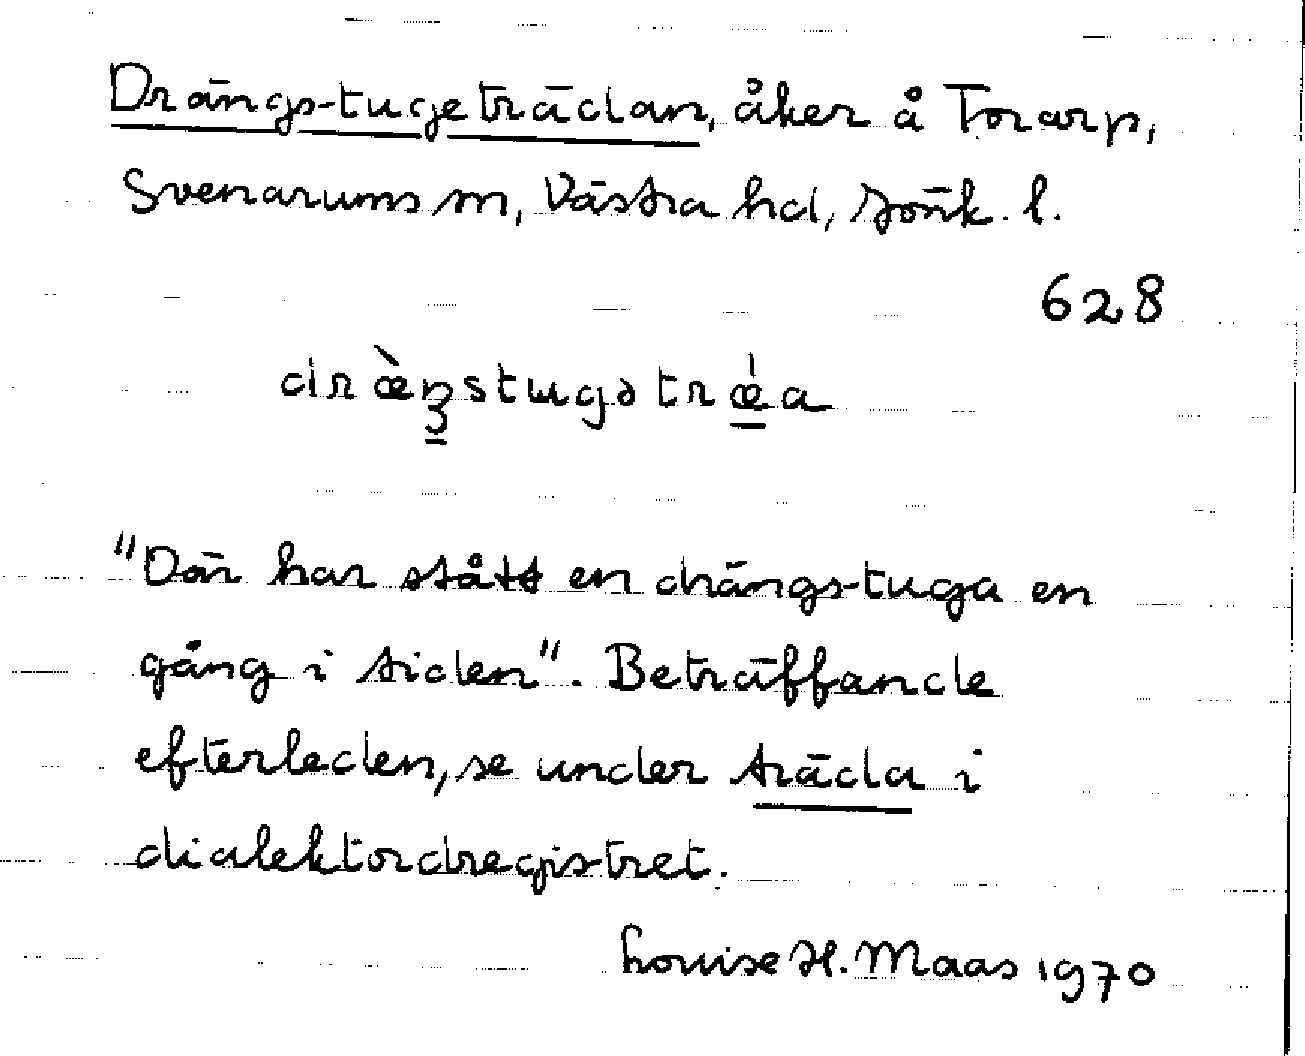 Drängstugeträdan, åker å Torarp,
Svenarums sn, Västra hd, Jönk. l.
628
dræ̀ŋstugətrǽa
"Där har stått en drängstuga en
gång i tiden". Beträffande
efterleden, se under träda i
dialektordregistret.
Louise H. Maas 1970